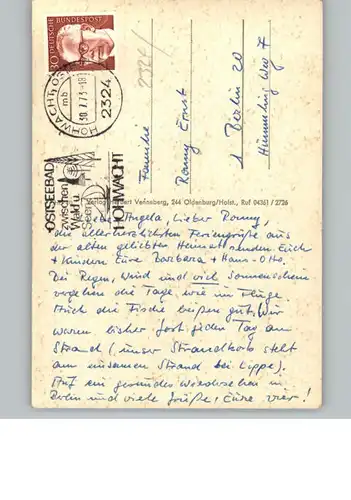 30
DEUTSCHE BUNDESPOST
HOHWACHT, OSTSEE
mb
30.7.73-18
2324
OSTSEEBAD
zwischen
Wald u
See
HOHWACHT
2324/
Familie
Ronny Ernst
1 Berlin 20
Himmelring Weg 7
Verlag Vennberg, 244 Oldenburg/Holst., Ruf 04361 / 2726
Liebe Angela, lieber Ronny,
die allerherzlichsten Feriengrüße aus
der alten geliebten Heimat senden Euch
+ Kindern Eure Barbara + Hans-Otto.
Bei Regen, Wind und viel Sonnenschein
vergehen die Tage wie im Fluge.
Auch die Fische beißen gut. Wir
waren bisher fast jeden Tag am
Strand (unser Strandkorb steht
am einsamen Strand bei Lippe).
Auf ein gesundes Wiedersehen in
Berlin und viele Grüße, Eure vier!